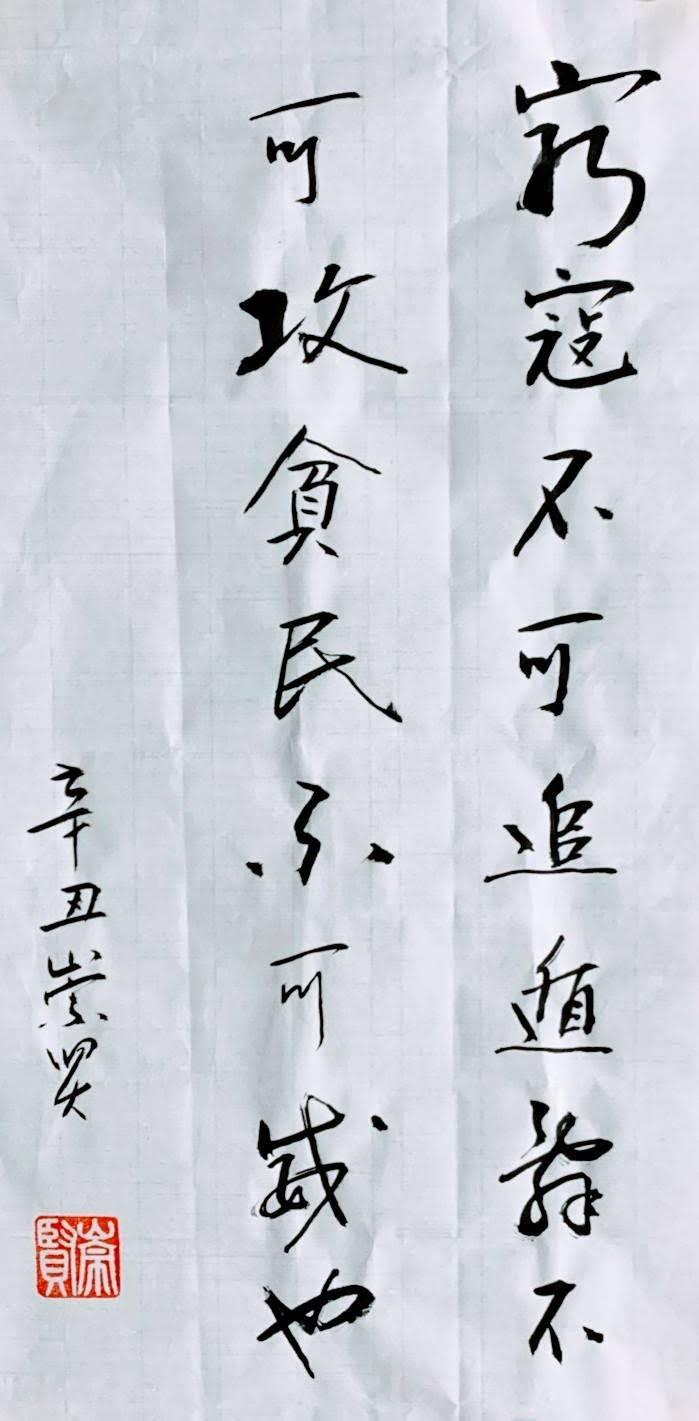 窮寇不可追遁辭不
可攻貧民不可威也
辛丑崇賢
崇賢